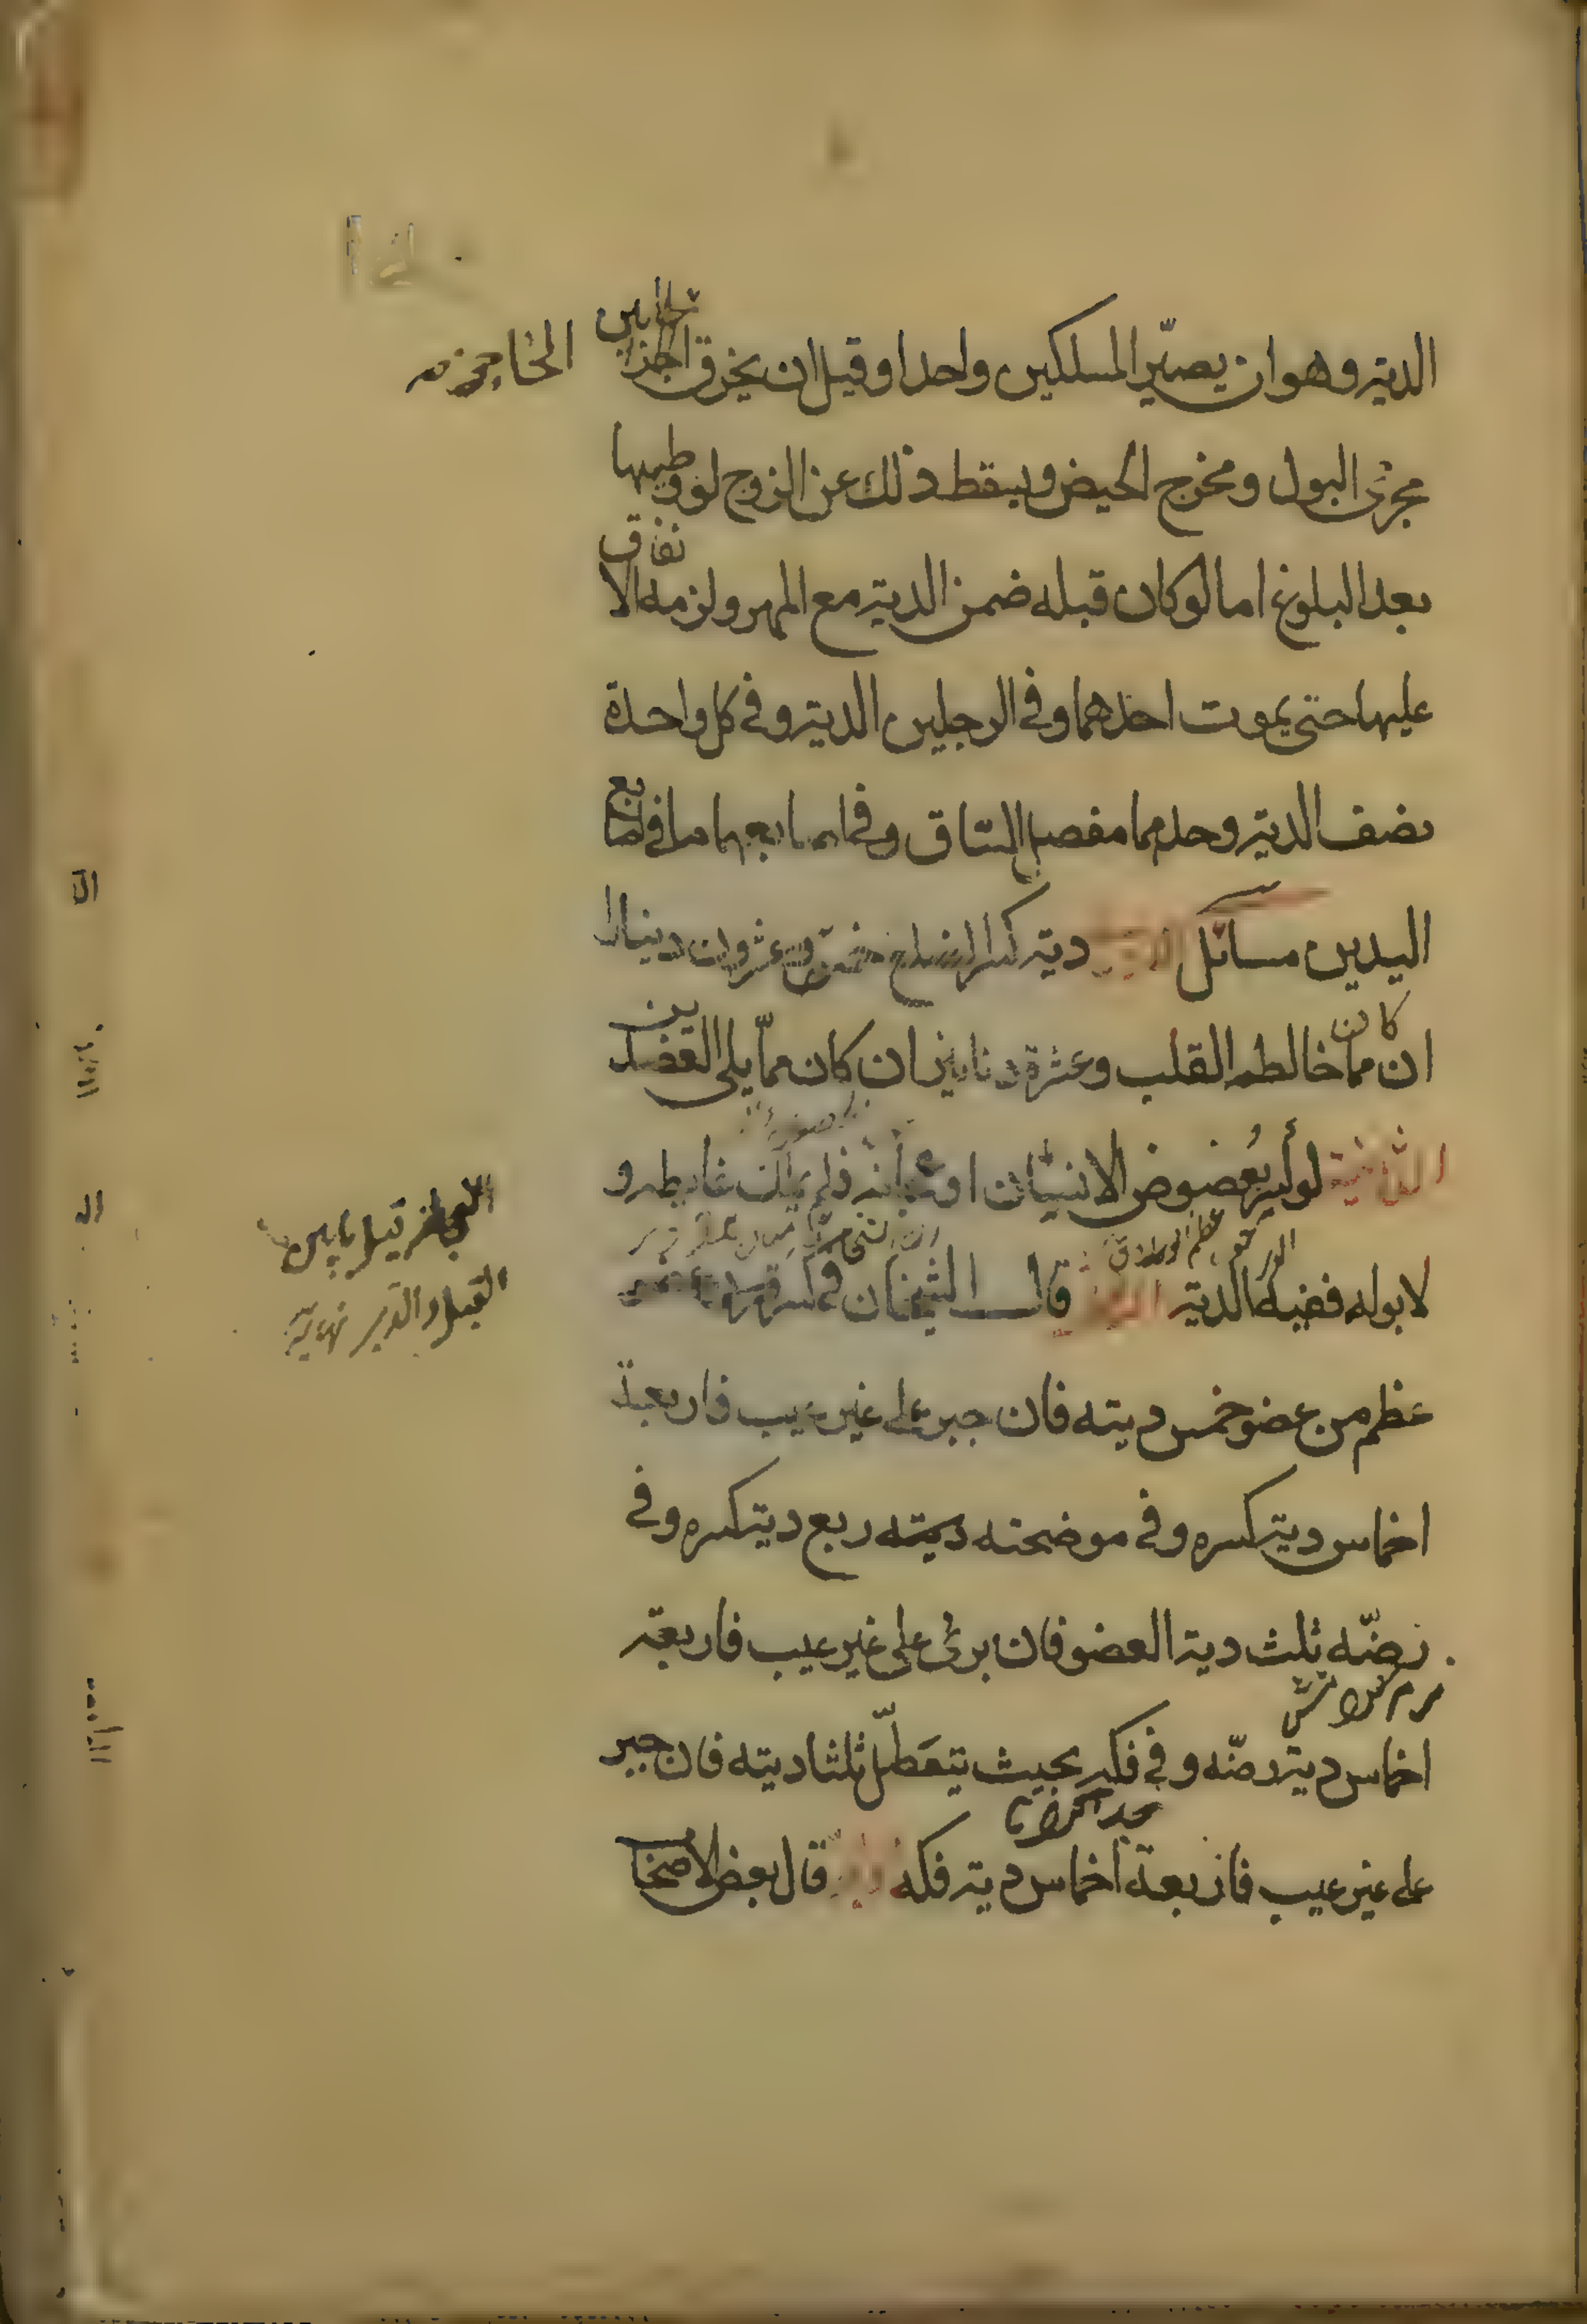 الدية وهو ان يصيّر المسلكين واحدا وقيل ان يخرق الحاجز ما بين
الحاجز
مجرى البول ومخرج الحيض ويسقط ذلك عن الزوج لو وطيها
بعد البلوغ اما لو كان قبله ضمن الدية مع المهر ولزمه الانفاق
عليها حتى يموت احدهما وفي الرجلين الدية وفي كل واحدة
نصف الدية وحدهما مفصل الساق وفي اصابعهما ما في اصابع
اليدين مسائل دية كسر الضلع خمسة وعشرون دينارا
ان كان مما خالط القلب وعشرة دنانير ان كان مما يلي العضدين
الثانية لو كسر بعصوص الانسان او عجانه فلم يملك غايطه و
لا بوله ففيه الدية قال الشيخان في كسر
القبل والدبر
عظم من عضو خمس ديته فان جبر على غير عيب فاربعة
اخماس دية كسره وفي موضحته ديته ربع دية كسره وفي
رضّه ثلث دية العضو فان برئ على غير عيب فاربعة
اخماس دية رضّه وفي فكه بحيث يتعطّل ثلثا ديته فان جبر
على غير عيب فاربعة اخماس دية فكه قال بعض الاصحاب